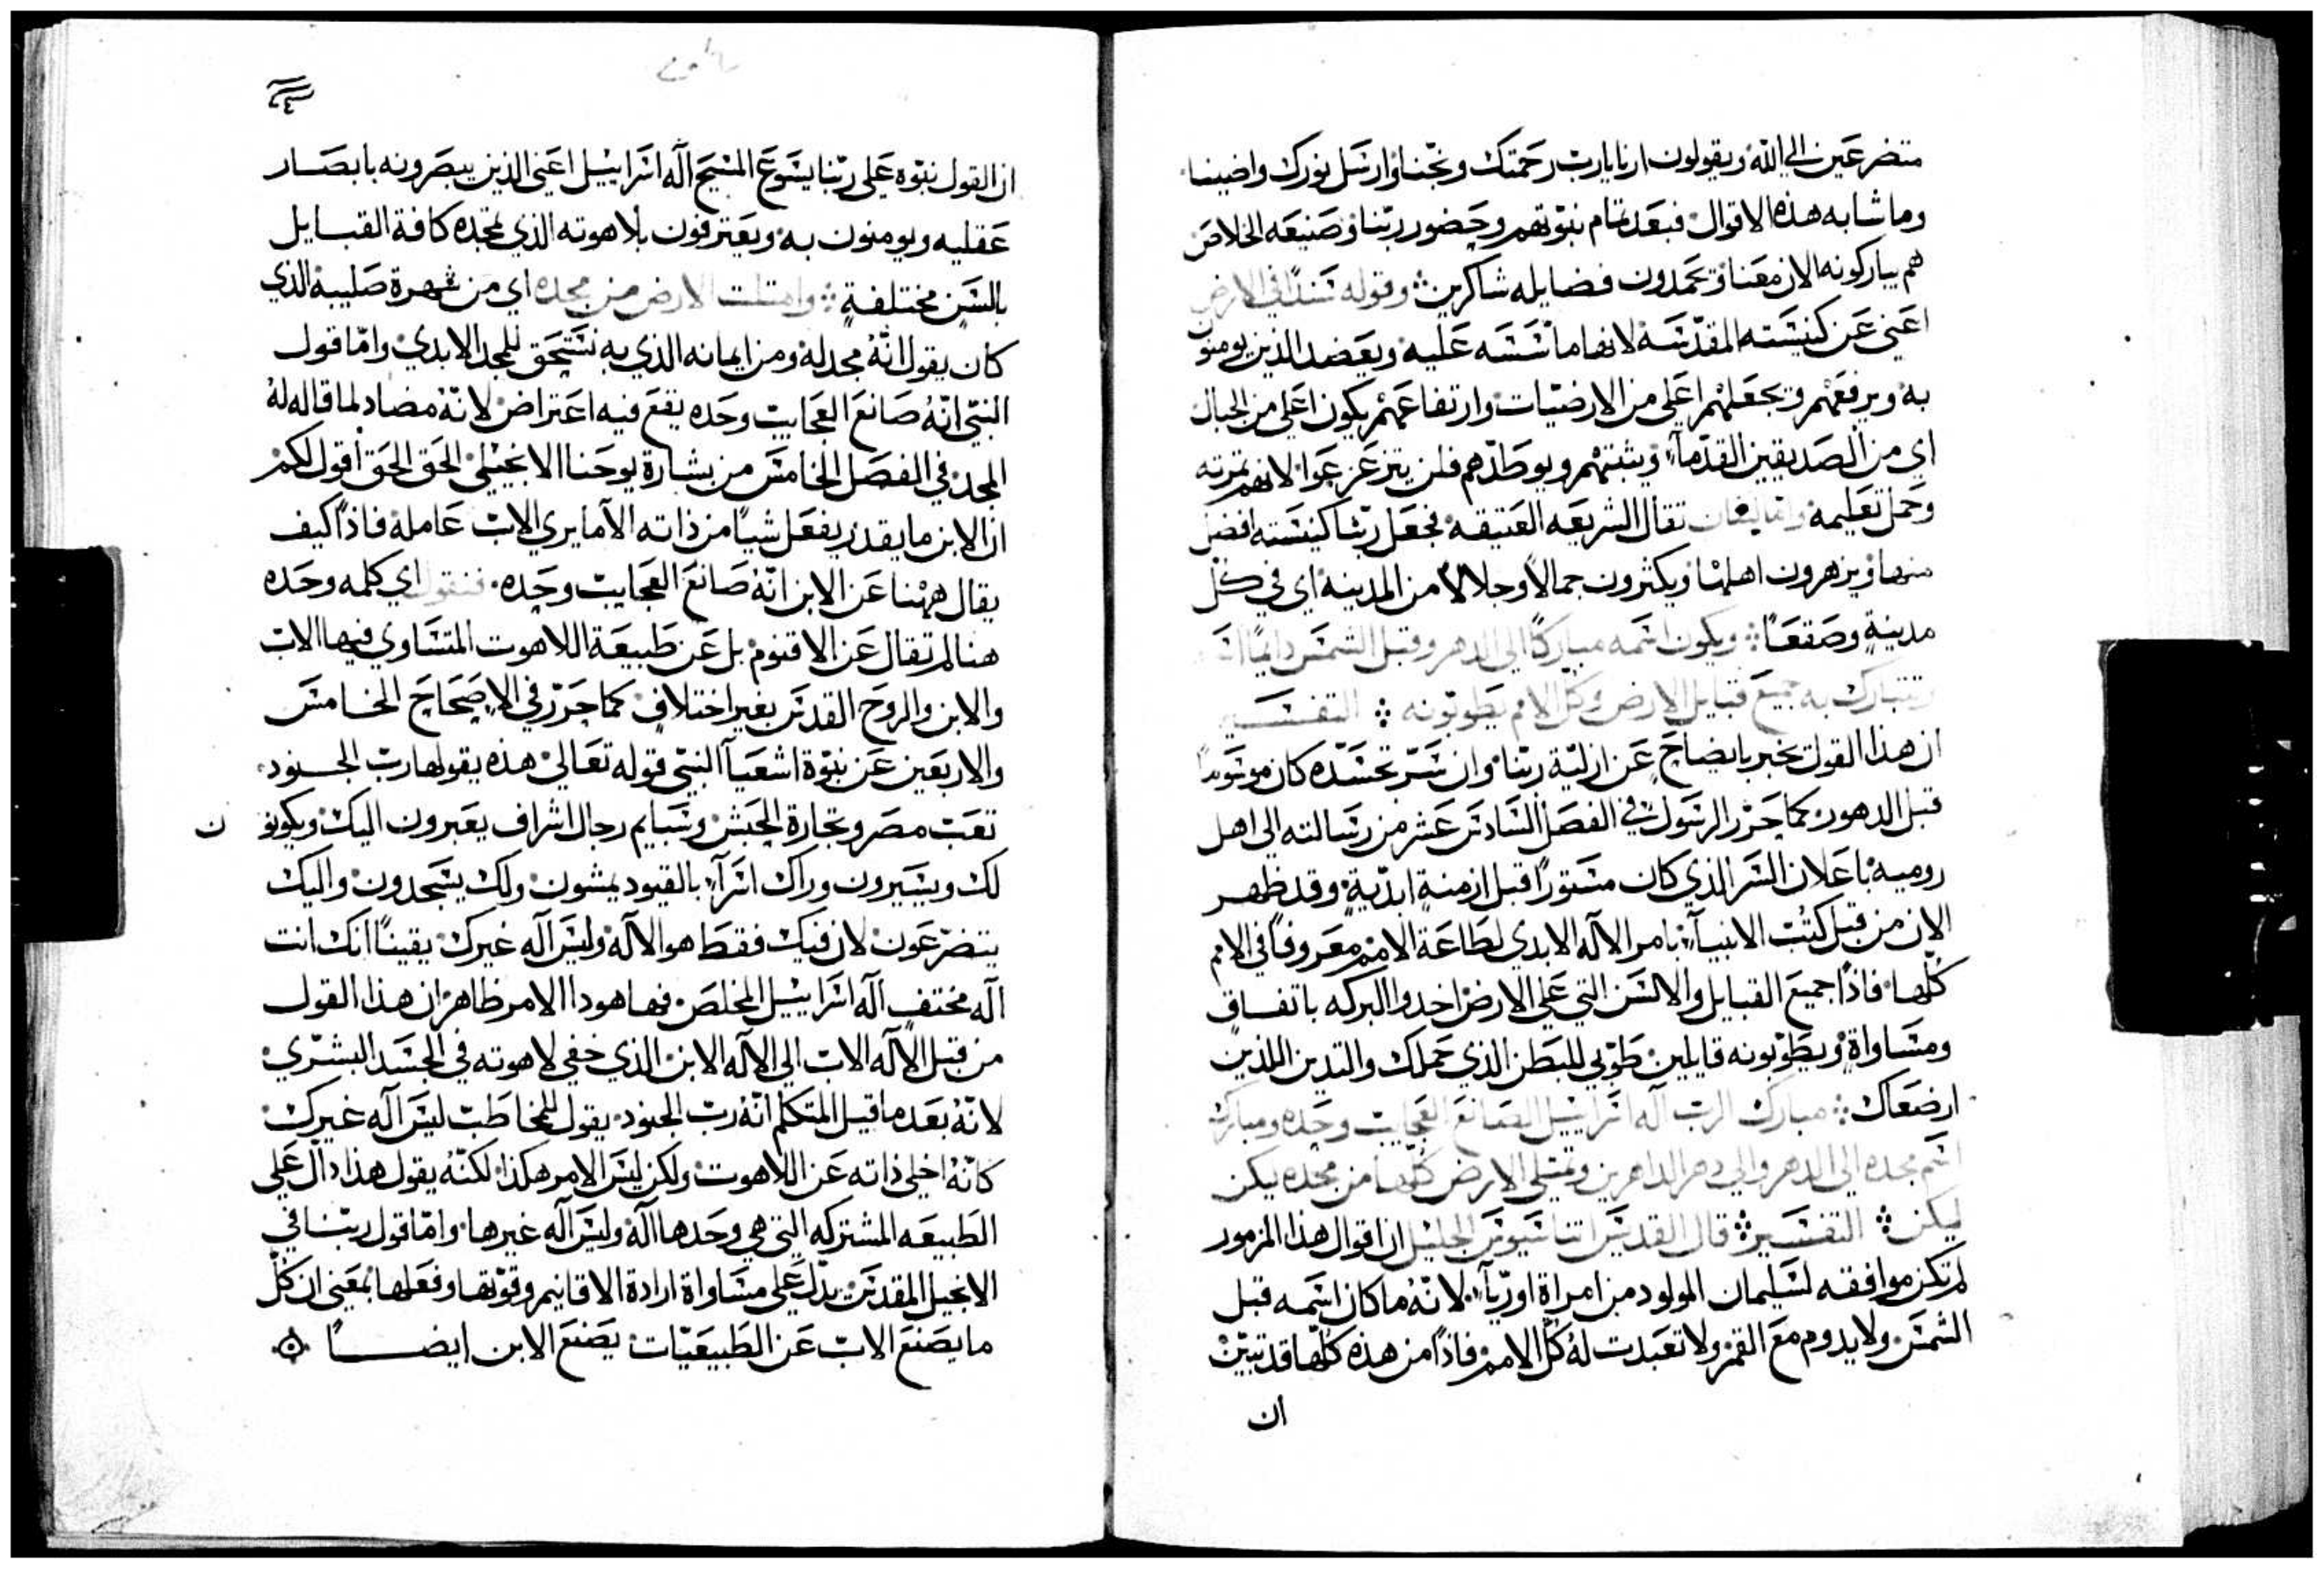 متضرعين الي الله ويقولون ارنا يارب رحمتك ونجنا وارسل نورك واضينا
وما شابه هذه الاقوال فبعد تمام نبوتهم وحضور ربنا وصنيعه الخلاص
هم يباركونه الان معنا ويحمدون فضايله شاكرين ⁘ وقوله سندًا في الارض
اعني عن كنيسته المقدسة لانها ماسسه عليه ويعضد الذين يومنون
به ويرفعهم ويجعلهم اعلي من الارضيات وارتفاعهم يكون اعلي من الجبال
اي من الصديقين القدمآ ويثبتهم ويوطدهم فلن يتزعزعوا لانهم ثمرته
وحمل تعليمه تقال الشريعه العتيقه فجعل ربنا كنيسته افضل
منها ويزهرون اهلها ويكثرون جمالاً وجلالاً من المدينة اي في كل
مدينةٍ وصقعًا ⁘ ويكون اسمه مباركًا الي الدهر وقبل الشمس دايمًا
وتتبارك به جميع قبايل الارض وكل الامم يطوبونه ⁘ التفسير
ان هذا القول يخبر بايضاحٍ عن ازلية ربنا وان سر تجسده كان
قبل الدهور كما حرر الرسول في الفصل السادس عشر من رسالته الي اهل
روميه باعلان السر الذي كان مستورًا قبل ازمنةٍ ابديةٍ وقد ظهر
الان من قبل كتب الانبيآ بامر الاله الابدي لطاعة الامم معروفًا في الامم
كلها فاذًا جميع القبايل والالسن التي علي الارض اخدوا البركه باتفاق
ومساواةٍ ويطوبونه قايلين طوبي للبطن الذي حملك والثديين اللذين
ارضعاك ⁘ مبارك الرب اله اسراييل الصانع العجايب وحده ومبارك
اسم مجده الي الدهر والي دهر الداهرين وتمتلي الارض كلها من مجده يكن
ليكن ⁘ التفسير ⁘ قال القديس اتناسيوس الجليل ان اقوال هذا المزمور
لم تكن موافقه لسليمان المولود من امراة اوريآ لانه ما كان اسمه قبل
الشمس ولا يدوم مع القمر ولا تعبدت له كل الامم فاذًا من هذه كلها قد تبين
ان
ان القول نبوه علي ربنا يسوع المسيح اله اسراييل اعني الذين يبصرونه بابصار
عقليه ويومنون به ويعترفون بلاهوته الذي تمجده كافة القبايل
بالسن مختلفةٍ ⁘ وامتلت الارض من مجده اي من شهرة صليبه الذي
كان يقول انه مجد له ومن ايمانه الذي به نستحق للمجد الابدي واما قول
النبي انه صانع العجايب وحده يقع فيه اعتراض لانه مضاد لما قاله له
المجد في الفصل الخامس من بشارة يوحنا الانجيلي الحق الحق اقول لكم
ان الابن ما يقدر يفعل شيًا من ذاته الا ما يري الاب عامله فاذًا كيف
يقال ههنا عن الابن انه صانع العجايب وحده فنقول اي كلمه وحده
هنا لم تقال عن الاقنوم بل عن طبيعة اللاهوت المتساوي فيها الاب
والابن والروح القدس بغير اختلافٍ كما حرر في الاصحاح الخامس
والاربعين عن نبوة اشعيآ النبي قوله تعالي هذه يقولها رب الجنود
تعب مصر وتجارة الحبش وسبايم رجال اشراف يعبرون اليك ويكونو ن
لك ويسيرون وراك اسرآ بالقيود يمشون ولك يسجدون واليك
يتضرعون لان فيك فقط هو الاله وليس اله غيرك يقينًا انك انت
اله مختف اله اسراييل المخلص فها هودا الامر ظاهر ان هذا القول
من قبل الاله الاب الي الاله الابن الذي خفي لاهوته في الجسد البشري
لانه بعد ما قيل المتكلم انه رب الجنود يقول للمخاطب ليس اله غيرك
كانه اخلي ذاته عن اللاهوت ولكن ليس الامر هكذا لكنه يقول هذا دال علي
الطبيعه المشتركه التي هي وحدها اله وليس اله غيرها واما قول ربنا في
الانجيل المقدس يدل علي مساواة ارادة الاقانيم وقوتها وفعلها بمعني ان كل
ما يصنع الاب عن الطبيعيات يصنع الابن ايضًا